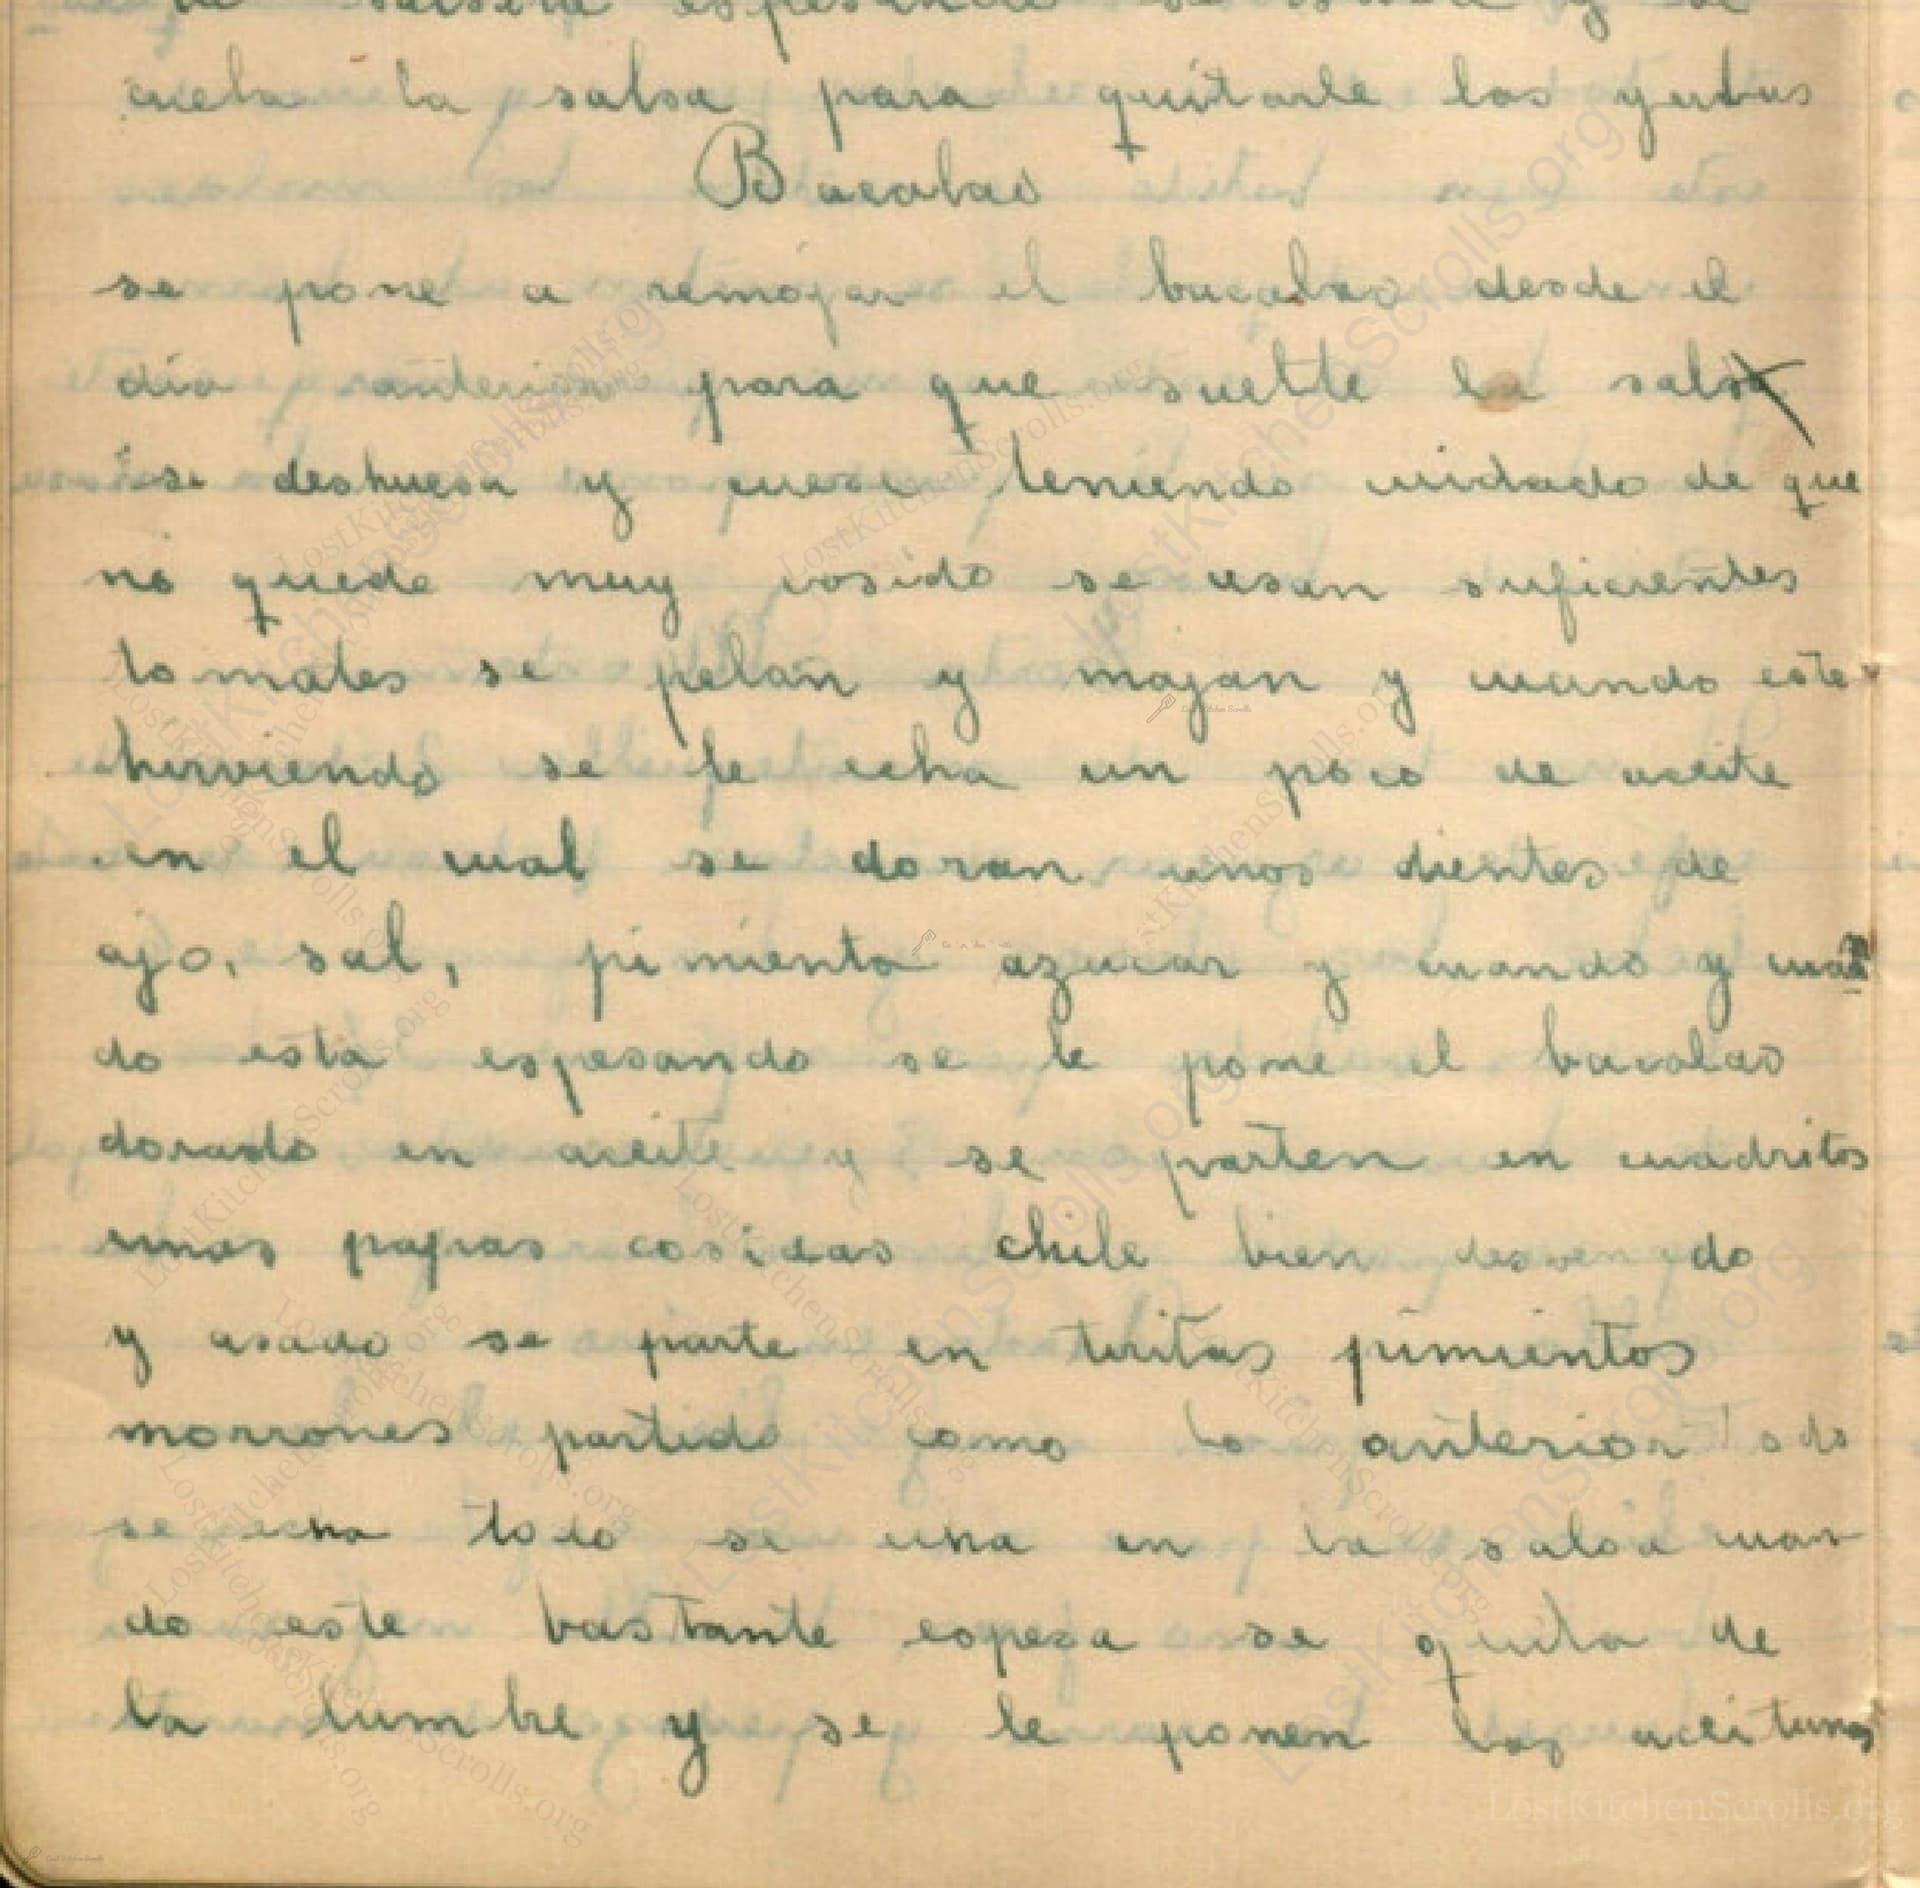 cuela la salsa para quitarle las yerbas
Bacalao
se pone a remojar el bacalao desde el
día anterior para que suelte la sal
se deshuesa y cuese teniendo cuidado de que
no quede muy cosido se usan suficientes
tomates se pelan y majan y cuando este
hirviendo se le echa un poco de aceite
en el cual se doran unos dientes de
ajo, sal, pimienta azucar y cuando y cuan
do esta espesando se le pone el bacalao
dorado en aceite y se parten en cuadritos
unas papas cosidas chile bien desvenado
y asado se parte en tiritas pimientos
morrones partido como lo anterior todo
se echa todo se una en la salsa cuan
do este bastante espesa se quita de
la lumbre y se le ponen las aceitunas
LostKitchenScrolls.org